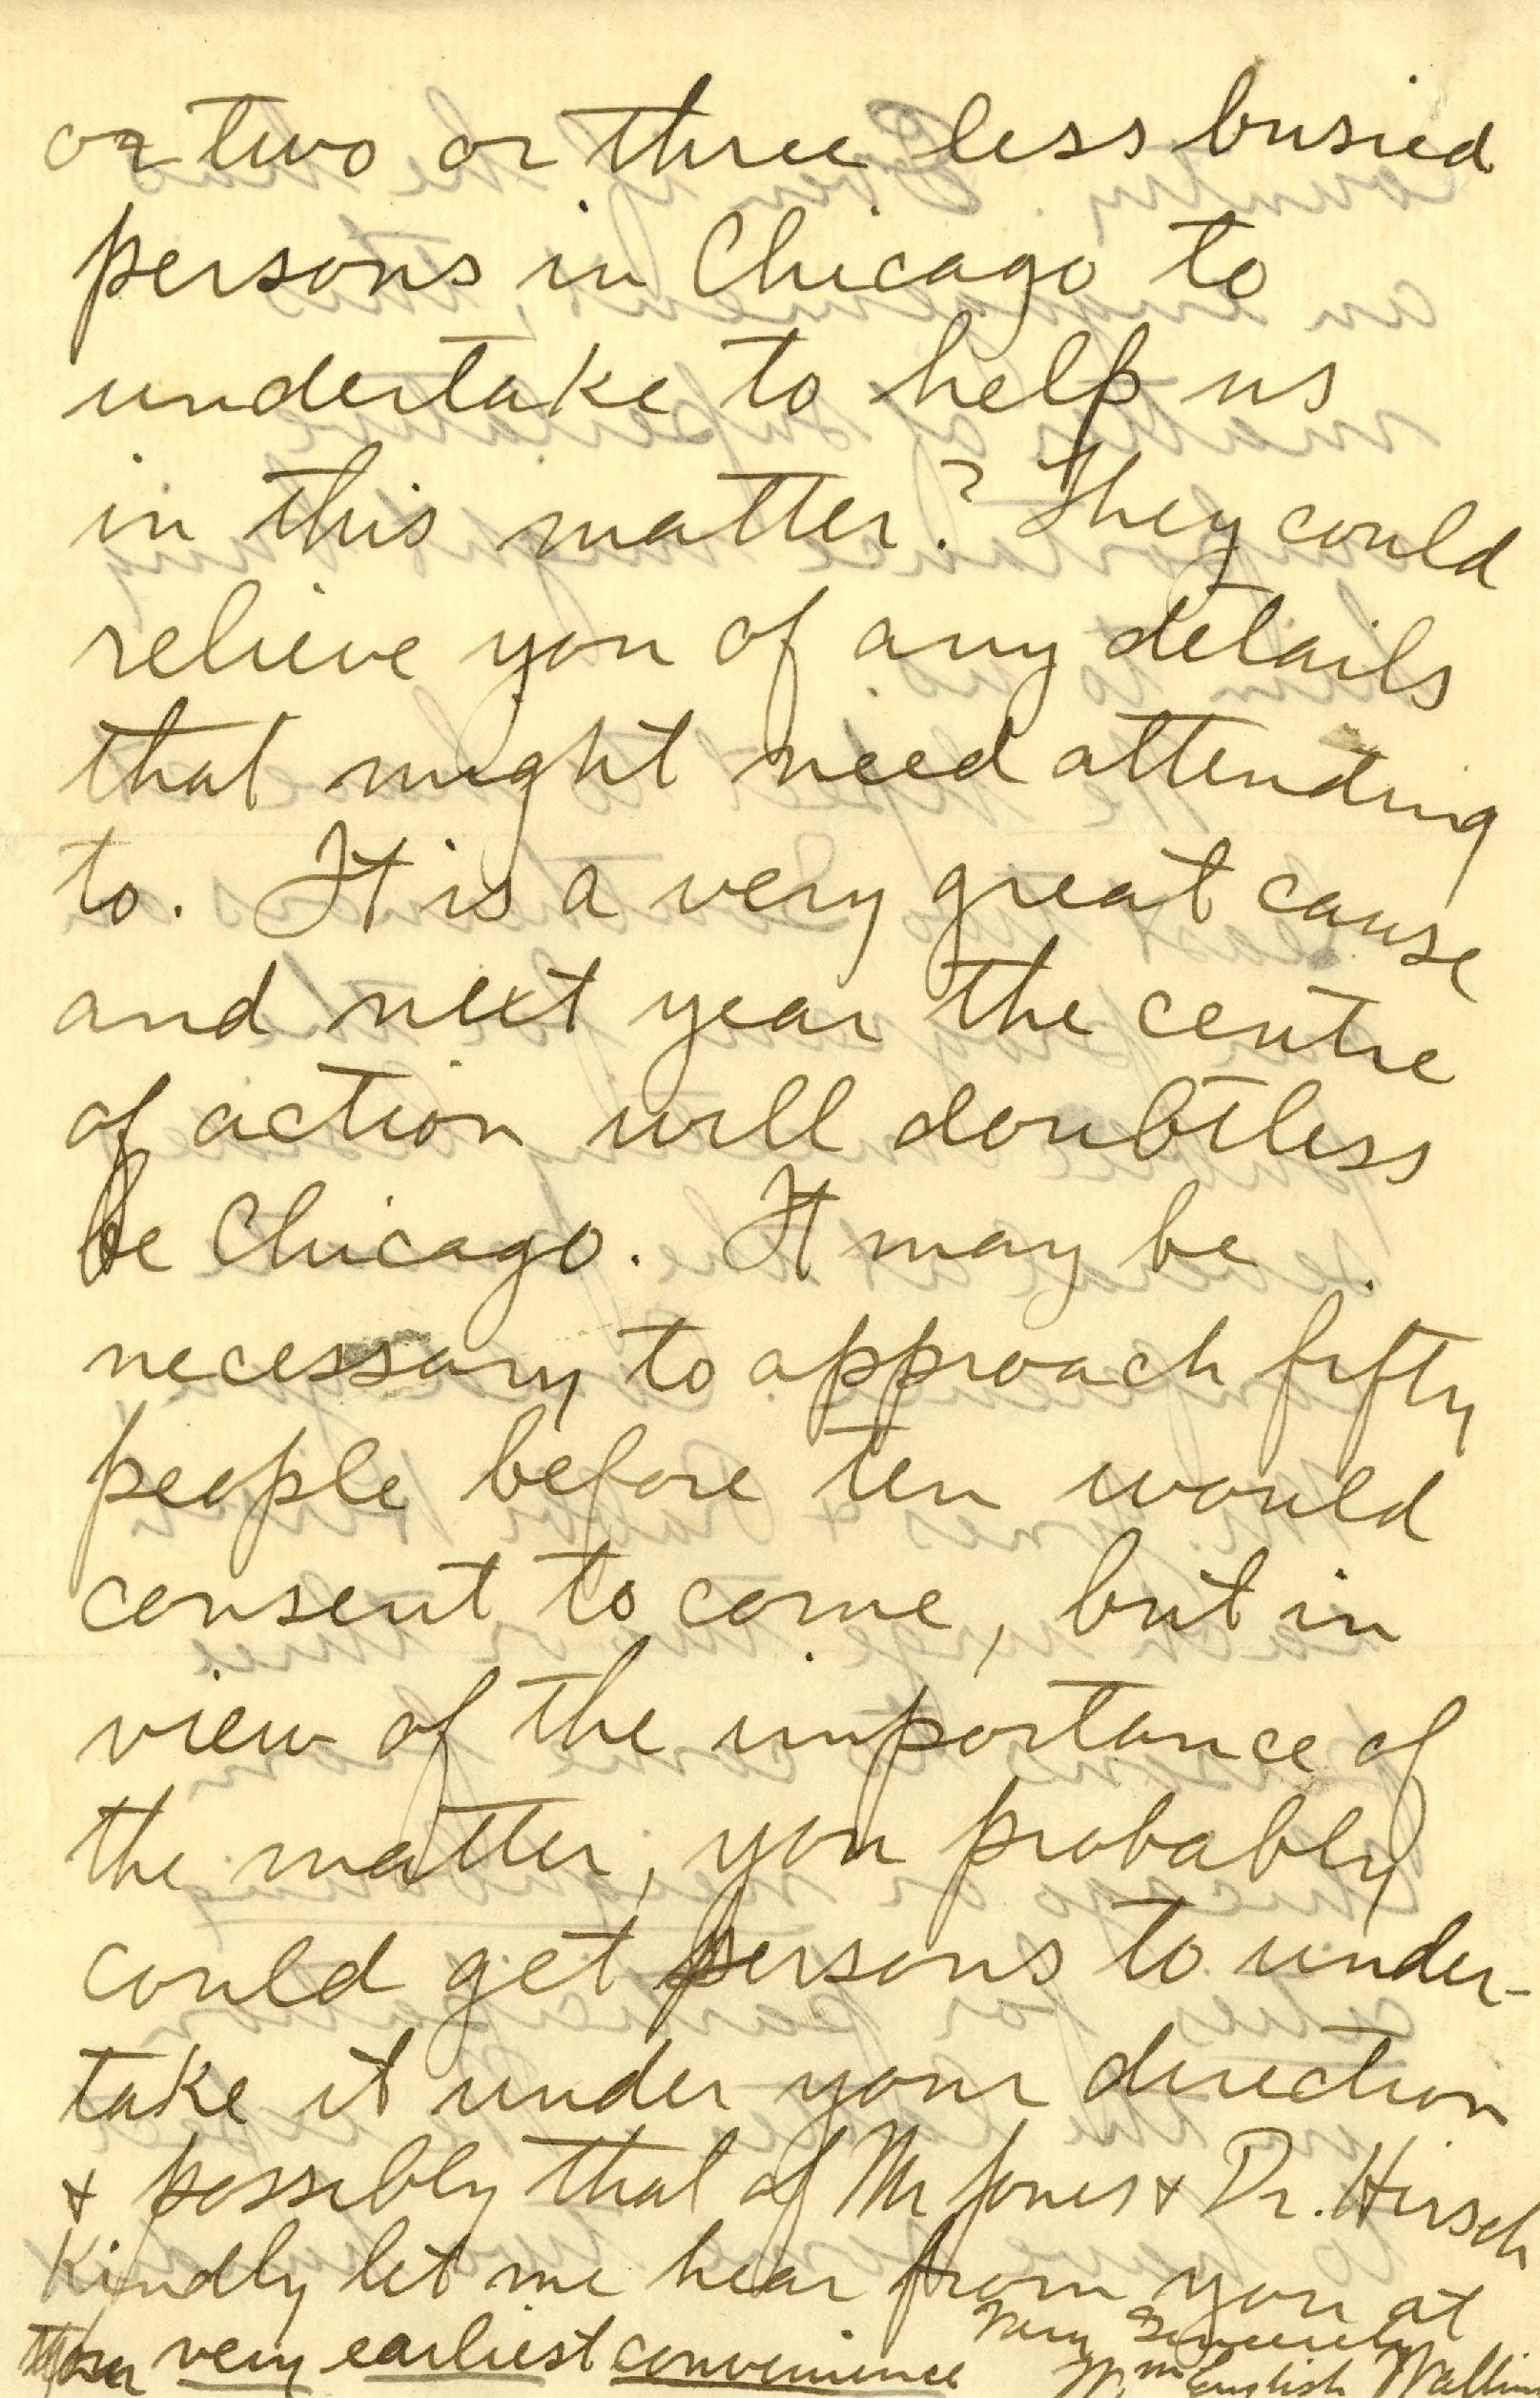 or two or three less busied
persons in Chicago to
undertake to help us
in this matter? They could
relieve you of any details
that might need attending
to. It is a very great cause
and next year the centre
of action will doubtless
be Chicago. It may be
necessary to approach fifty
people before ten would
consent to come, but in
view of the importance of
the matter, you probably
could get persons to under-
take it under your direction
& possibly that of Mr Jones & Dr. Hirsch
Kindly let me hear from you at
your very earliest convenience
Very Sincerely
Wm English Walling